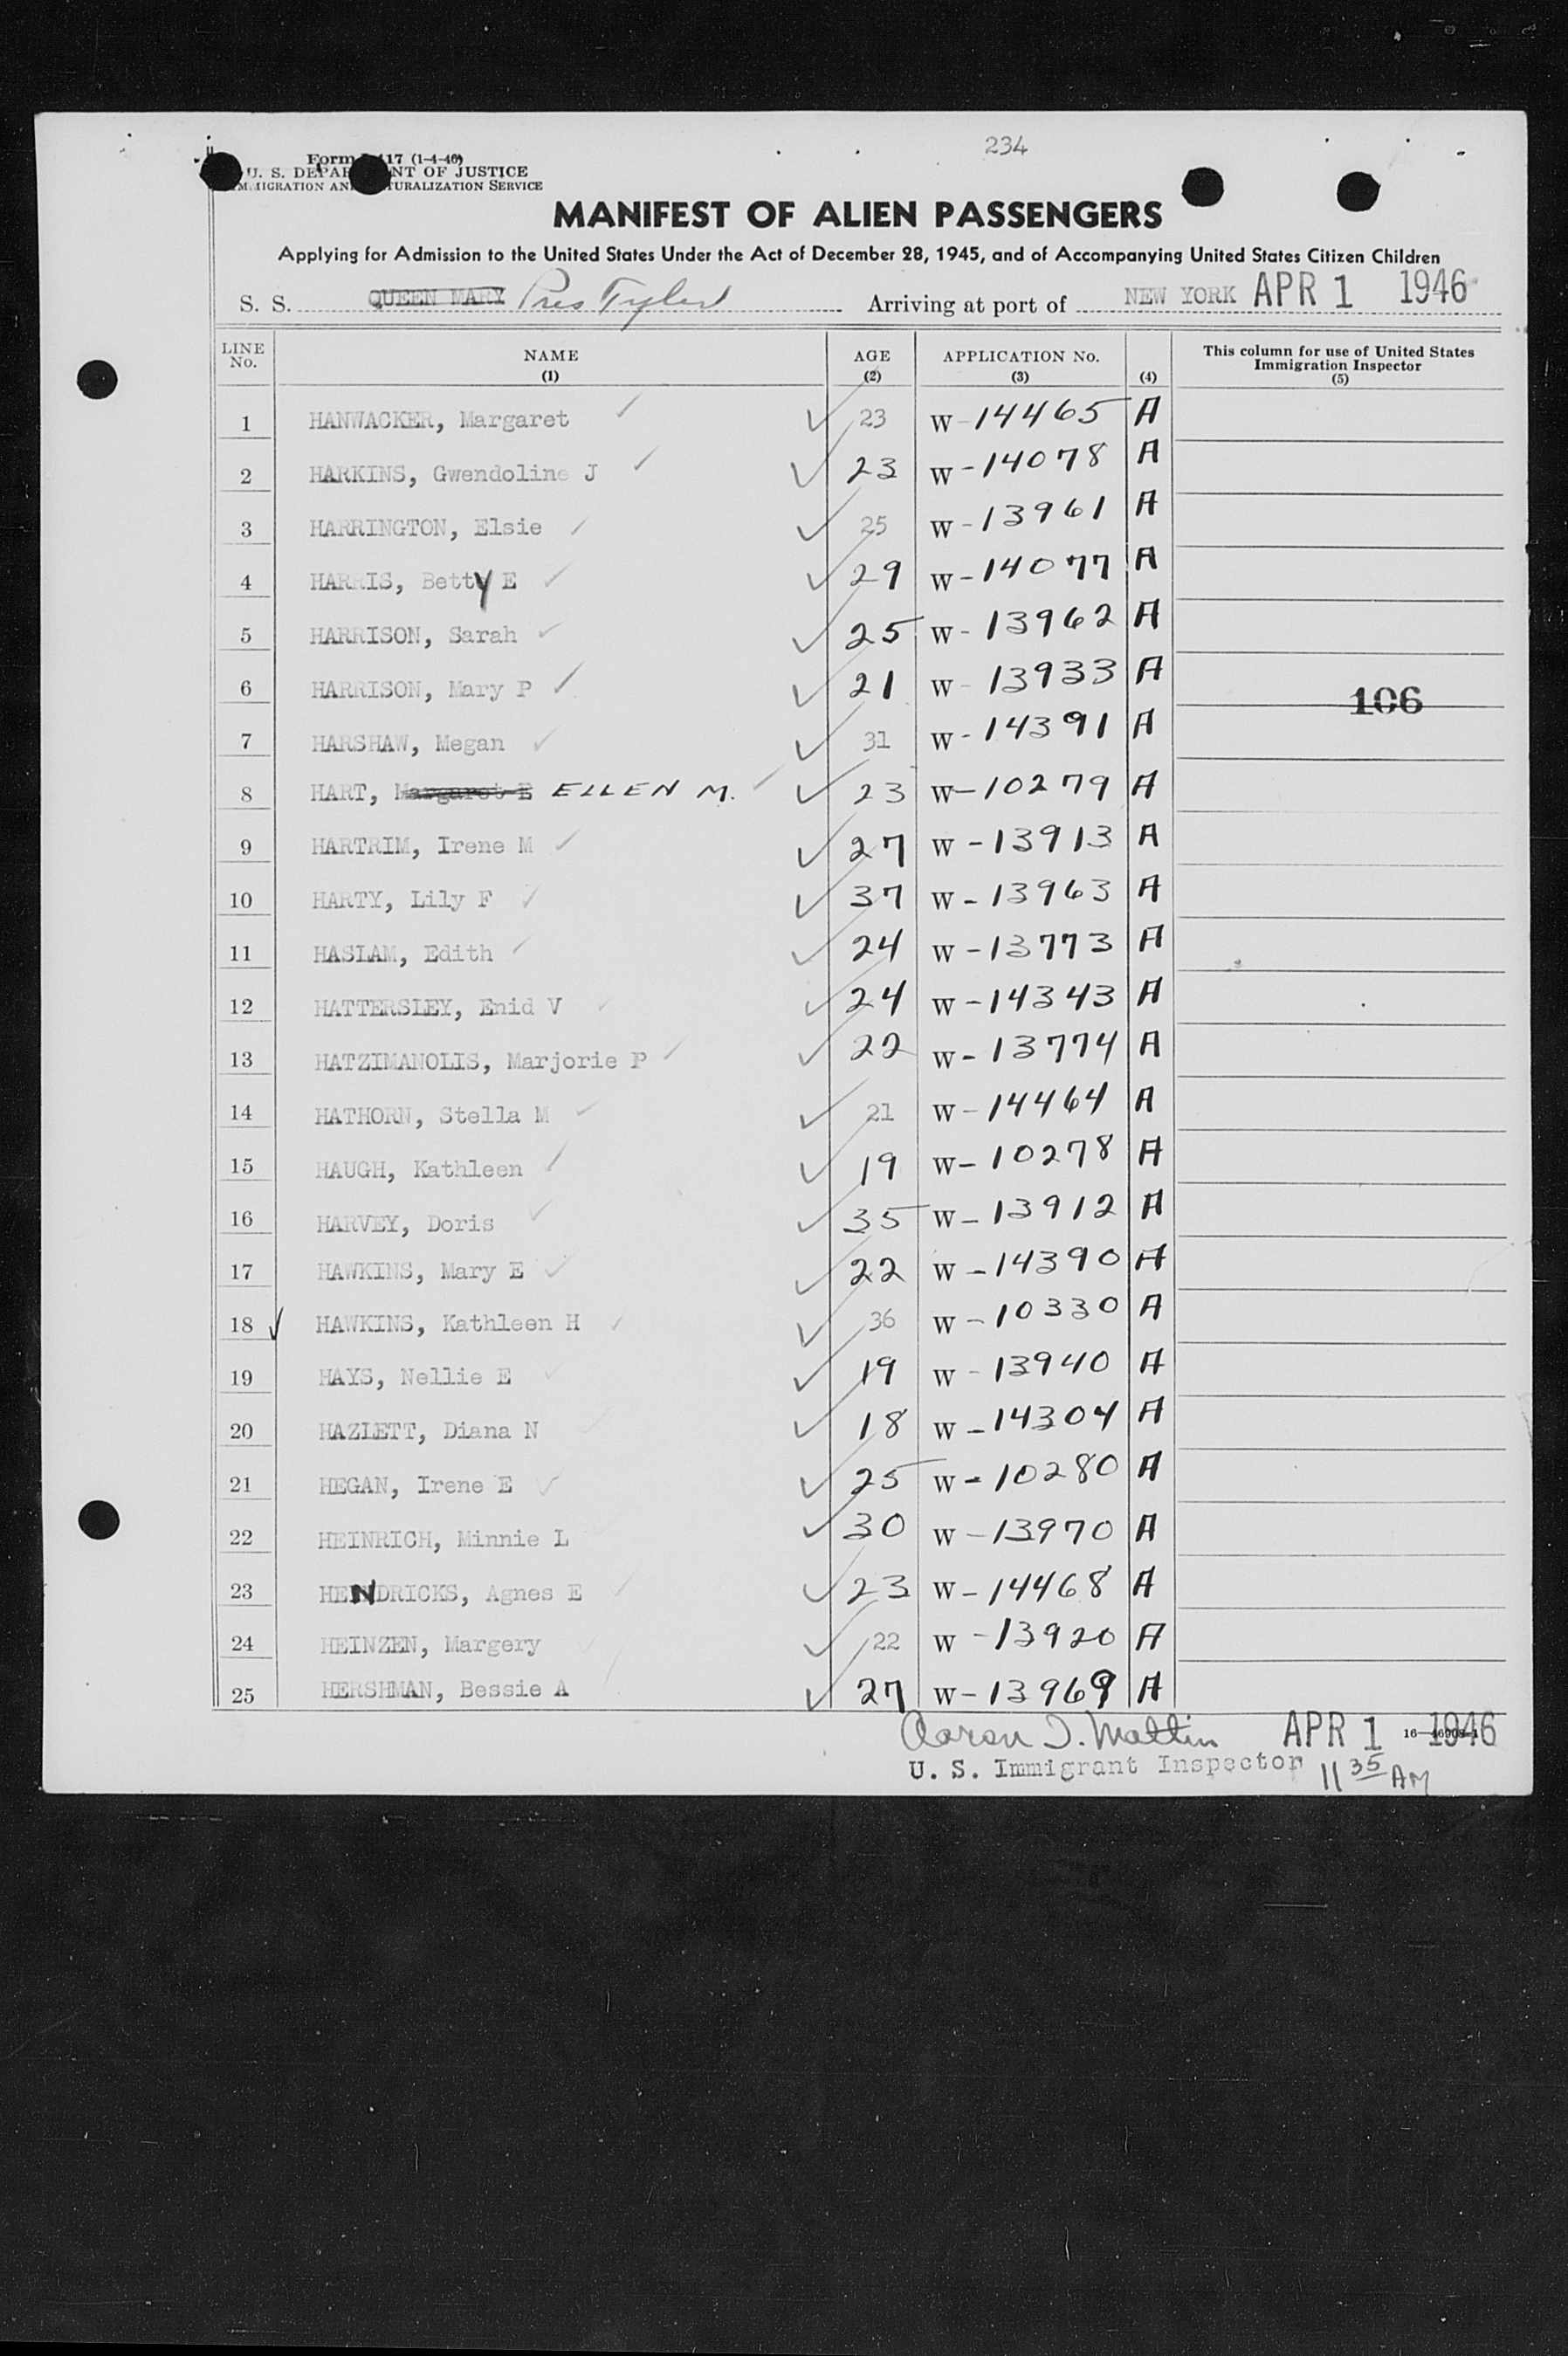 234
Form I-417 (1-4-46)
U. S. DEPARTMENT OF JUSTICE
IMMIGRATION AND NATURALIZATION SERVICE
MANIFEST OF ALIEN PASSENGERS
Applying for Admission to the United States Under the Act of December 28, 1945, and of Accompanying United States Citizen Children
S. S. QUEEN MARY Pres Tyler Arriving at port of NEW YORK APR 1 1946
LINE No. NAME (1) AGE (2) APPLICATION No. (3) (4) This column for use of United States Immigration Inspector (5)
1 HANWACKER, Margaret 23 W-14465 A
2 HARKINS, Gwendoline J 23 W-14078 A
3 HARRINGTON, Elsie 25 W-13961 A
4 HARRIS, Betty E 29 W-14077 A
5 HARRISON, Sarah 25 W-13962 A
6 HARRISON, Mary P 21 W-13933 A 106
7 HARSHAW, Megan 31 W-14391 A
8 HART, Margaret E ELLEN M. 23 W-10279 A
9 HARTRIM, Irene M 27 W-13913 A
10 HARTY, Lily F 37 W-13963 A
11 HASLAM, Edith 24 W-13773 A
12 HATTERSLEY, Enid V 24 W-14343 A
13 HATZIMANOLIS, Marjorie P 22 W-13774 A
14 HATHORN, Stella M 21 W-14464 A
15 HAUGH, Kathleen 19 W-10278 A
16 HARVEY, Doris 35 W-13912 A
17 HAWKINS, Mary E 22 W-14390 A
18 HAWKINS, Kathleen H 36 W-10330 A
19 HAYS, Nellie E 19 W-13940 A
20 HAZLETT, Diana N 18 W-14304 A
21 HEGAN, Irene E 25 W-10280 A
22 HEINRICH, Minnie L 30 W-13970 A
23 HENDRICKS, Agnes E 23 W-14468 A
24 HEINZEN, Margery 22 W-13920 A
25 HERSHMAN, Bessie A 27 W-13969 A
Aaron I. Maltin APR 1 1946
U. S. Immigrant Inspector 11 35 AM